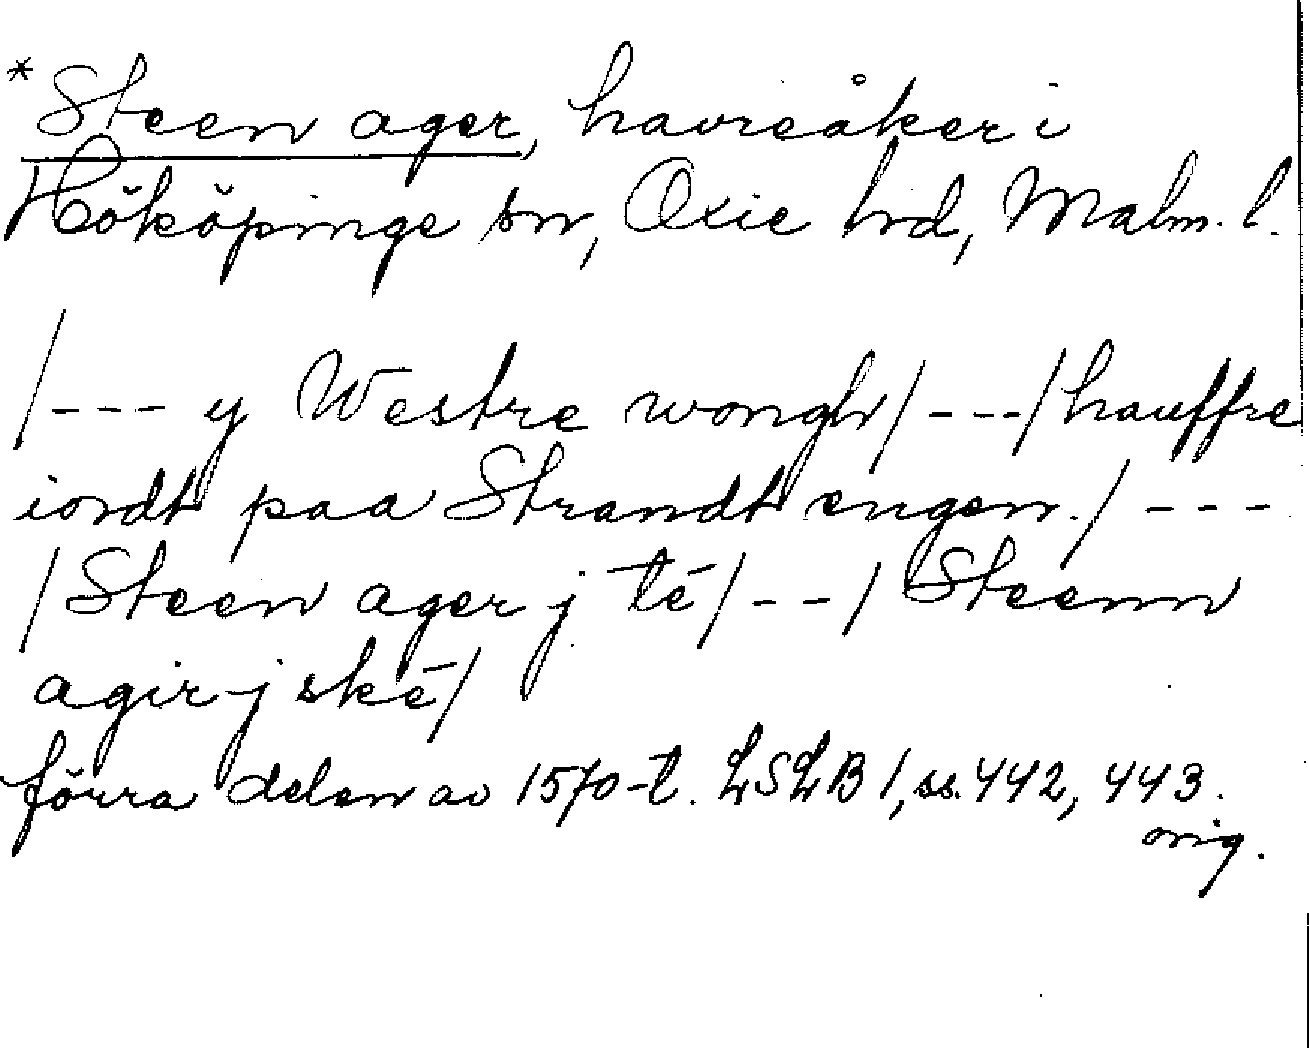 *Steen ager, havreåker i
Hököpinge sn, Oxie hd, Malm. l.
/--- y Westre wongh/---/hauffre
iordt paa Strandt engen./---
/Steen ager j tē/--/Steenn
agir j skē/
förra delen av 1570-t. LSLB 1, ss. 442, 443.
orig.